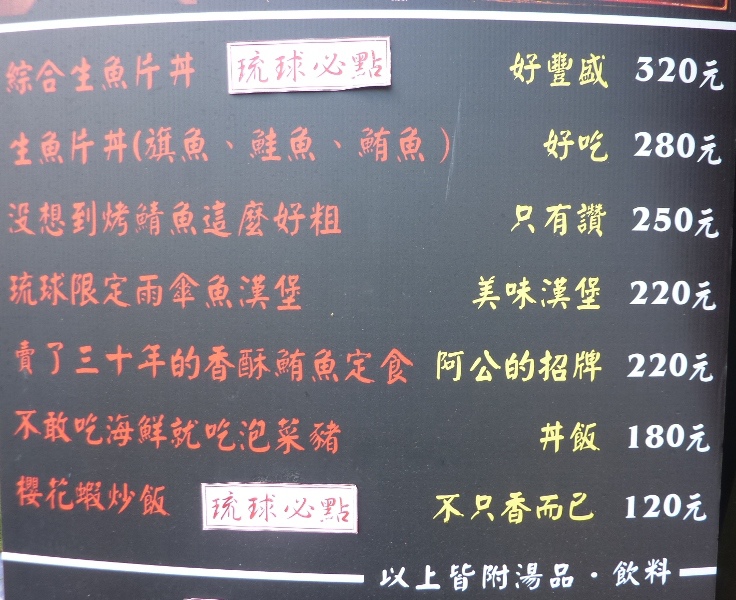 綜合生魚片丼 琉球必點 好豐盛 320元
生魚片丼(旗魚、鮭魚、鮪魚) 好吃 280元
沒想到烤鯖魚這麼好粗 只有讚 250元
琉球限定雨傘魚漢堡 美味漢堡 220元
賣了三十年的香酥鮪魚定食 阿公的招牌 220元
不敢吃海鮮就吃泡菜豬 丼飯 180元
櫻花蝦炒飯 琉球必點 不只香而已 120元
以上皆附湯品·飲料